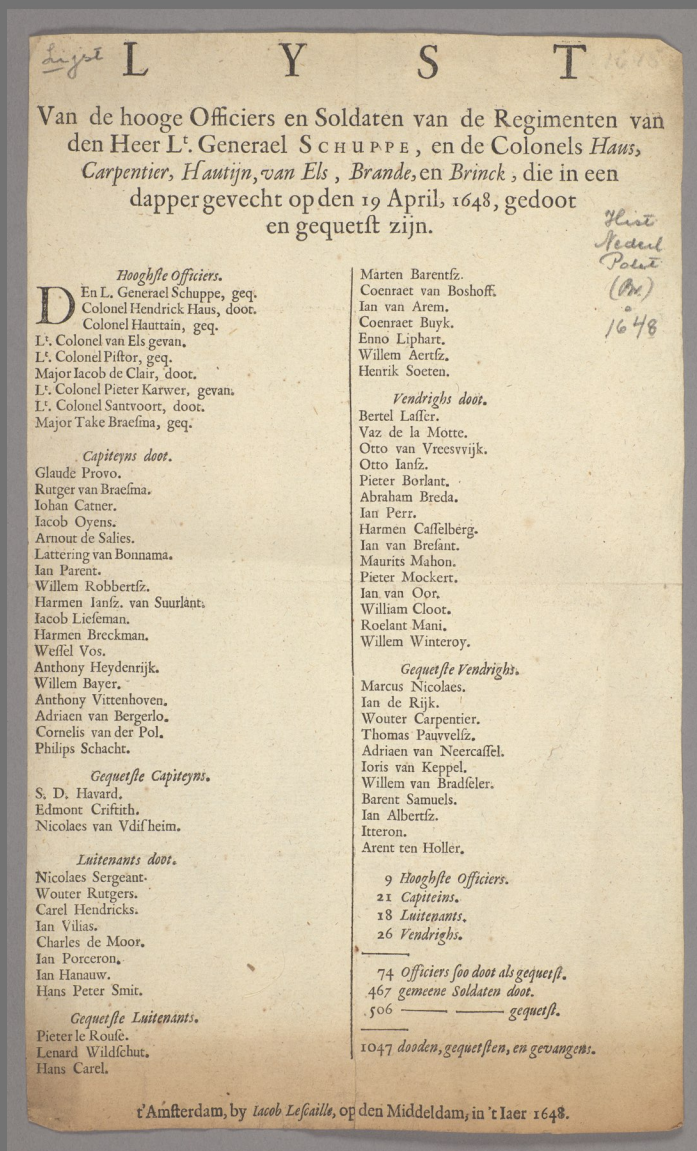 Lijst
L Y S T
Van de hooge Officiers en Soldaten van de Regimenten van
den Heer Lt. Generael SCHUPPE, en de Colonels Haus,
Carpentier, Hautijn, van Els, Brande, en Brinck, die in een
dapper gevecht op den 19 April, 1648, gedoot
en gequetſt zijn.
Hist
Nederl
(Br.)
1648
Hooghſte Officiers.
DEn L. Generael Schuppe, geq.
Colonel Hendrick Haus, doot.
Colonel Hauttain, geq.
Lt. Colonel van Els gevan.
Lt. Colonel Piſtor, geq.
Major Iacob de Clair, doot.
Lt. Colonel Pieter Karwer, gevan.
Lt. Colonel Santvoort, doot.
Major Take Braeſma, geq.
Capiteyns doot.
Glaude Provo.
Rutger van Braeſma.
Iohan Catner.
Iacob Oyens.
Arnout de Salies.
Lattering van Bonnama.
Ian Parent.
Willem Robbertſz.
Harmen Ianſz. van Suurlant.
Iacob Lieſeman.
Harmen Breckman.
Weſſel Vos.
Anthony Heydenrijk.
Willem Bayer.
Anthony Vittenhoven.
Adriaen van Bergerlo.
Cornelis van der Pol.
Philips Schacht.
Gequetſte Capiteyns.
S. D. Havard.
Edmont Criſtith.
Nicolaes van Vdiſheim.
Luitenants doot.
Nicolaes Sergeant.
Wouter Rutgers.
Carel Hendricks.
Ian Vilias.
Charles de Moor.
Ian Porceron.
Ian Hanauw.
Hans Peter Smit.
Gequetſte Luitenants.
Pieter le Rouſe.
Lenard Wildſchut.
Hans Carel.
Marten Barentſz.
Coenraet van Boshoff.
Ian van Arem.
Coenraet Buyk.
Enno Liphart.
Willem Aertſz.
Henrik Soeten.
Vendrighs doot.
Bertel Laſſer.
Vaz de la Motte.
Otto van Vreesvvijk.
Otto Ianſz.
Pieter Borlant.
Abraham Breda.
Ian Perr.
Harmen Caſſelberg.
Ian van Breſant.
Maurits Mahon.
Pieter Mockert.
Ian van Oor.
William Cloot.
Roelant Mani.
Willem Winteroy.
Gequetſte Vendrighs.
Marcus Nicolaes.
Ian de Rijk.
Wouter Carpentier.
Thomas Pauvvelſz.
Adriaen van Neercaſſel.
Ioris van Keppel.
Willem van Bradſeler.
Barent Samuels.
Ian Albertſz.
Itteron.
Arent ten Holler.
9 Hooghſte Officiers.
21 Capiteins.
18 Luitenants.
26 Vendrighs.
74 Officiers ſoo doot als gequetſt.
467 gemeene Soldaten doot.
506 —— —— gequetſt.
1047 dooden, gequetſten, en gevangens.
t'Amſterdam, by Iacob Leſcaille, op den Middeldam, in 't Iaer 1648.